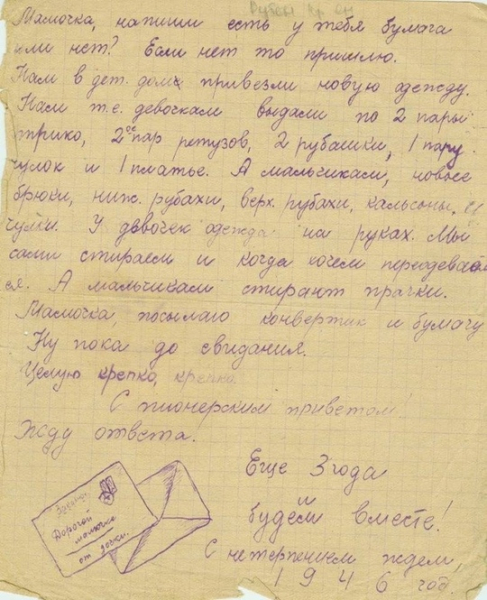 Мамочка, напиши есть у тебя бумага
или нет? Если нет то пришлю.
Нам в дет. дом привезли новую одежду.
Нам т.е. девочкам выдали по 2 пары
трико, 2ое пар ретузов, 2 рубашки, 1 пару
чулок и 1 платье. А мальчикам, новые
брюки, ниж. рубахи, верх. рубахи, кальсоны, и
чулки. У девочек одежда на руках. Мы
сами стираем и когда хочем переодеваем
ся. А мальчикам стирают прачки.
Мамочка, посылаю конвертик и бумагу
Ну пока до свидания.
Целую крепко, крепко
С пионерским приветом!
Жду ответа.
Еще 3 года
и
будем вместе!
С нетерпением ждем,
1946 год.
Дорогой
мамочке
от дочки.